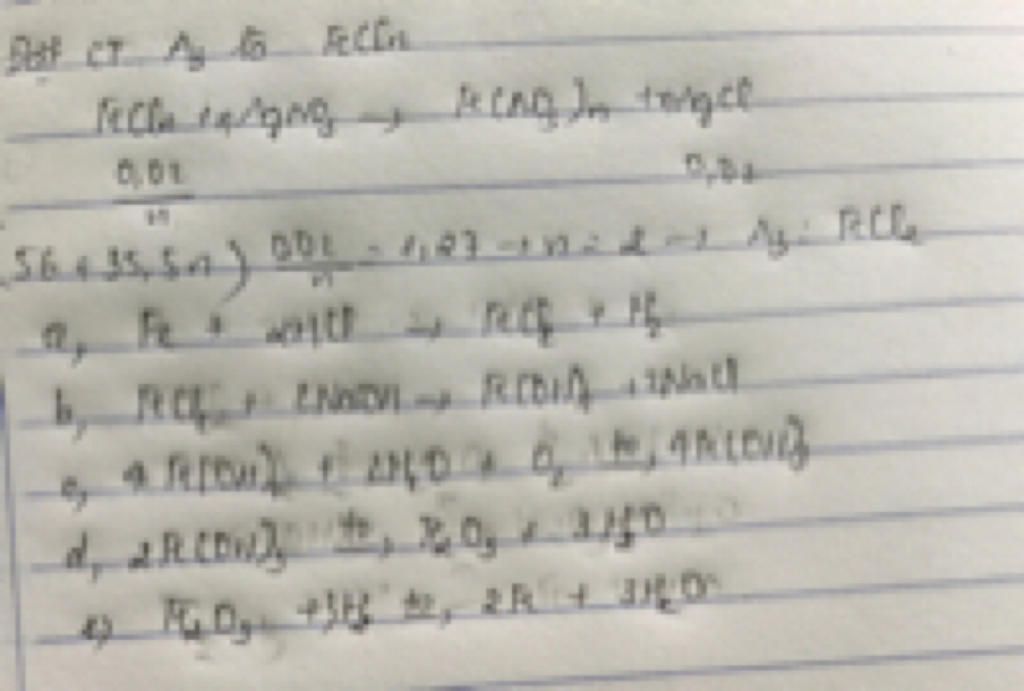 Đặt CT A3 là FeCln
FeCln + nAgNO3 → Fe(NO3)n + nAgCl
0,02/n 0,02
(56 + 35,5n) 0,02/n = 1,27 → n = 2 → A3: FeCl2
a, Fe + 2HCl → FeCl2 + H2
b, FeCl2 + 2NaOH → Fe(OH)2 + 2NaCl
c, 4Fe(OH)2 + 2H2O + O2 to→ 4Fe(OH)3
d, 2Fe(OH)3 to→ Fe2O3 + 3H2O
e) Fe2O3 + 3H2 to→ 2Fe + 3H2O